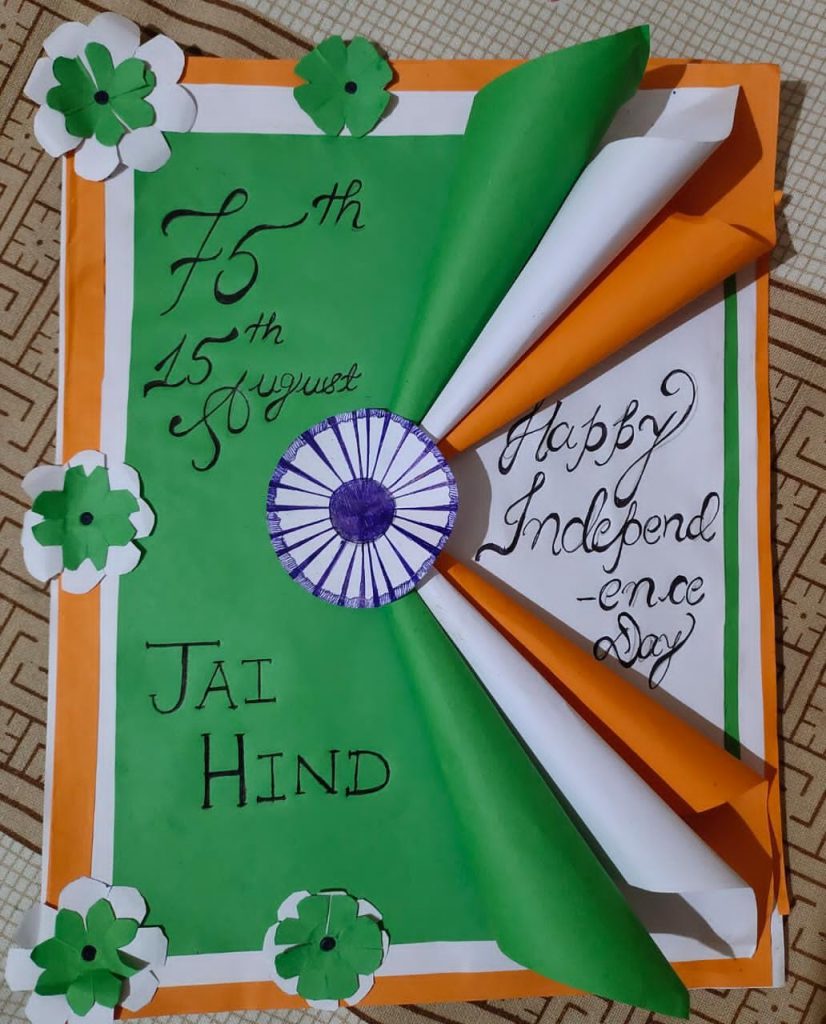 75th
15th
August
Happy
Independ
-ence
Day
JAI
HIND